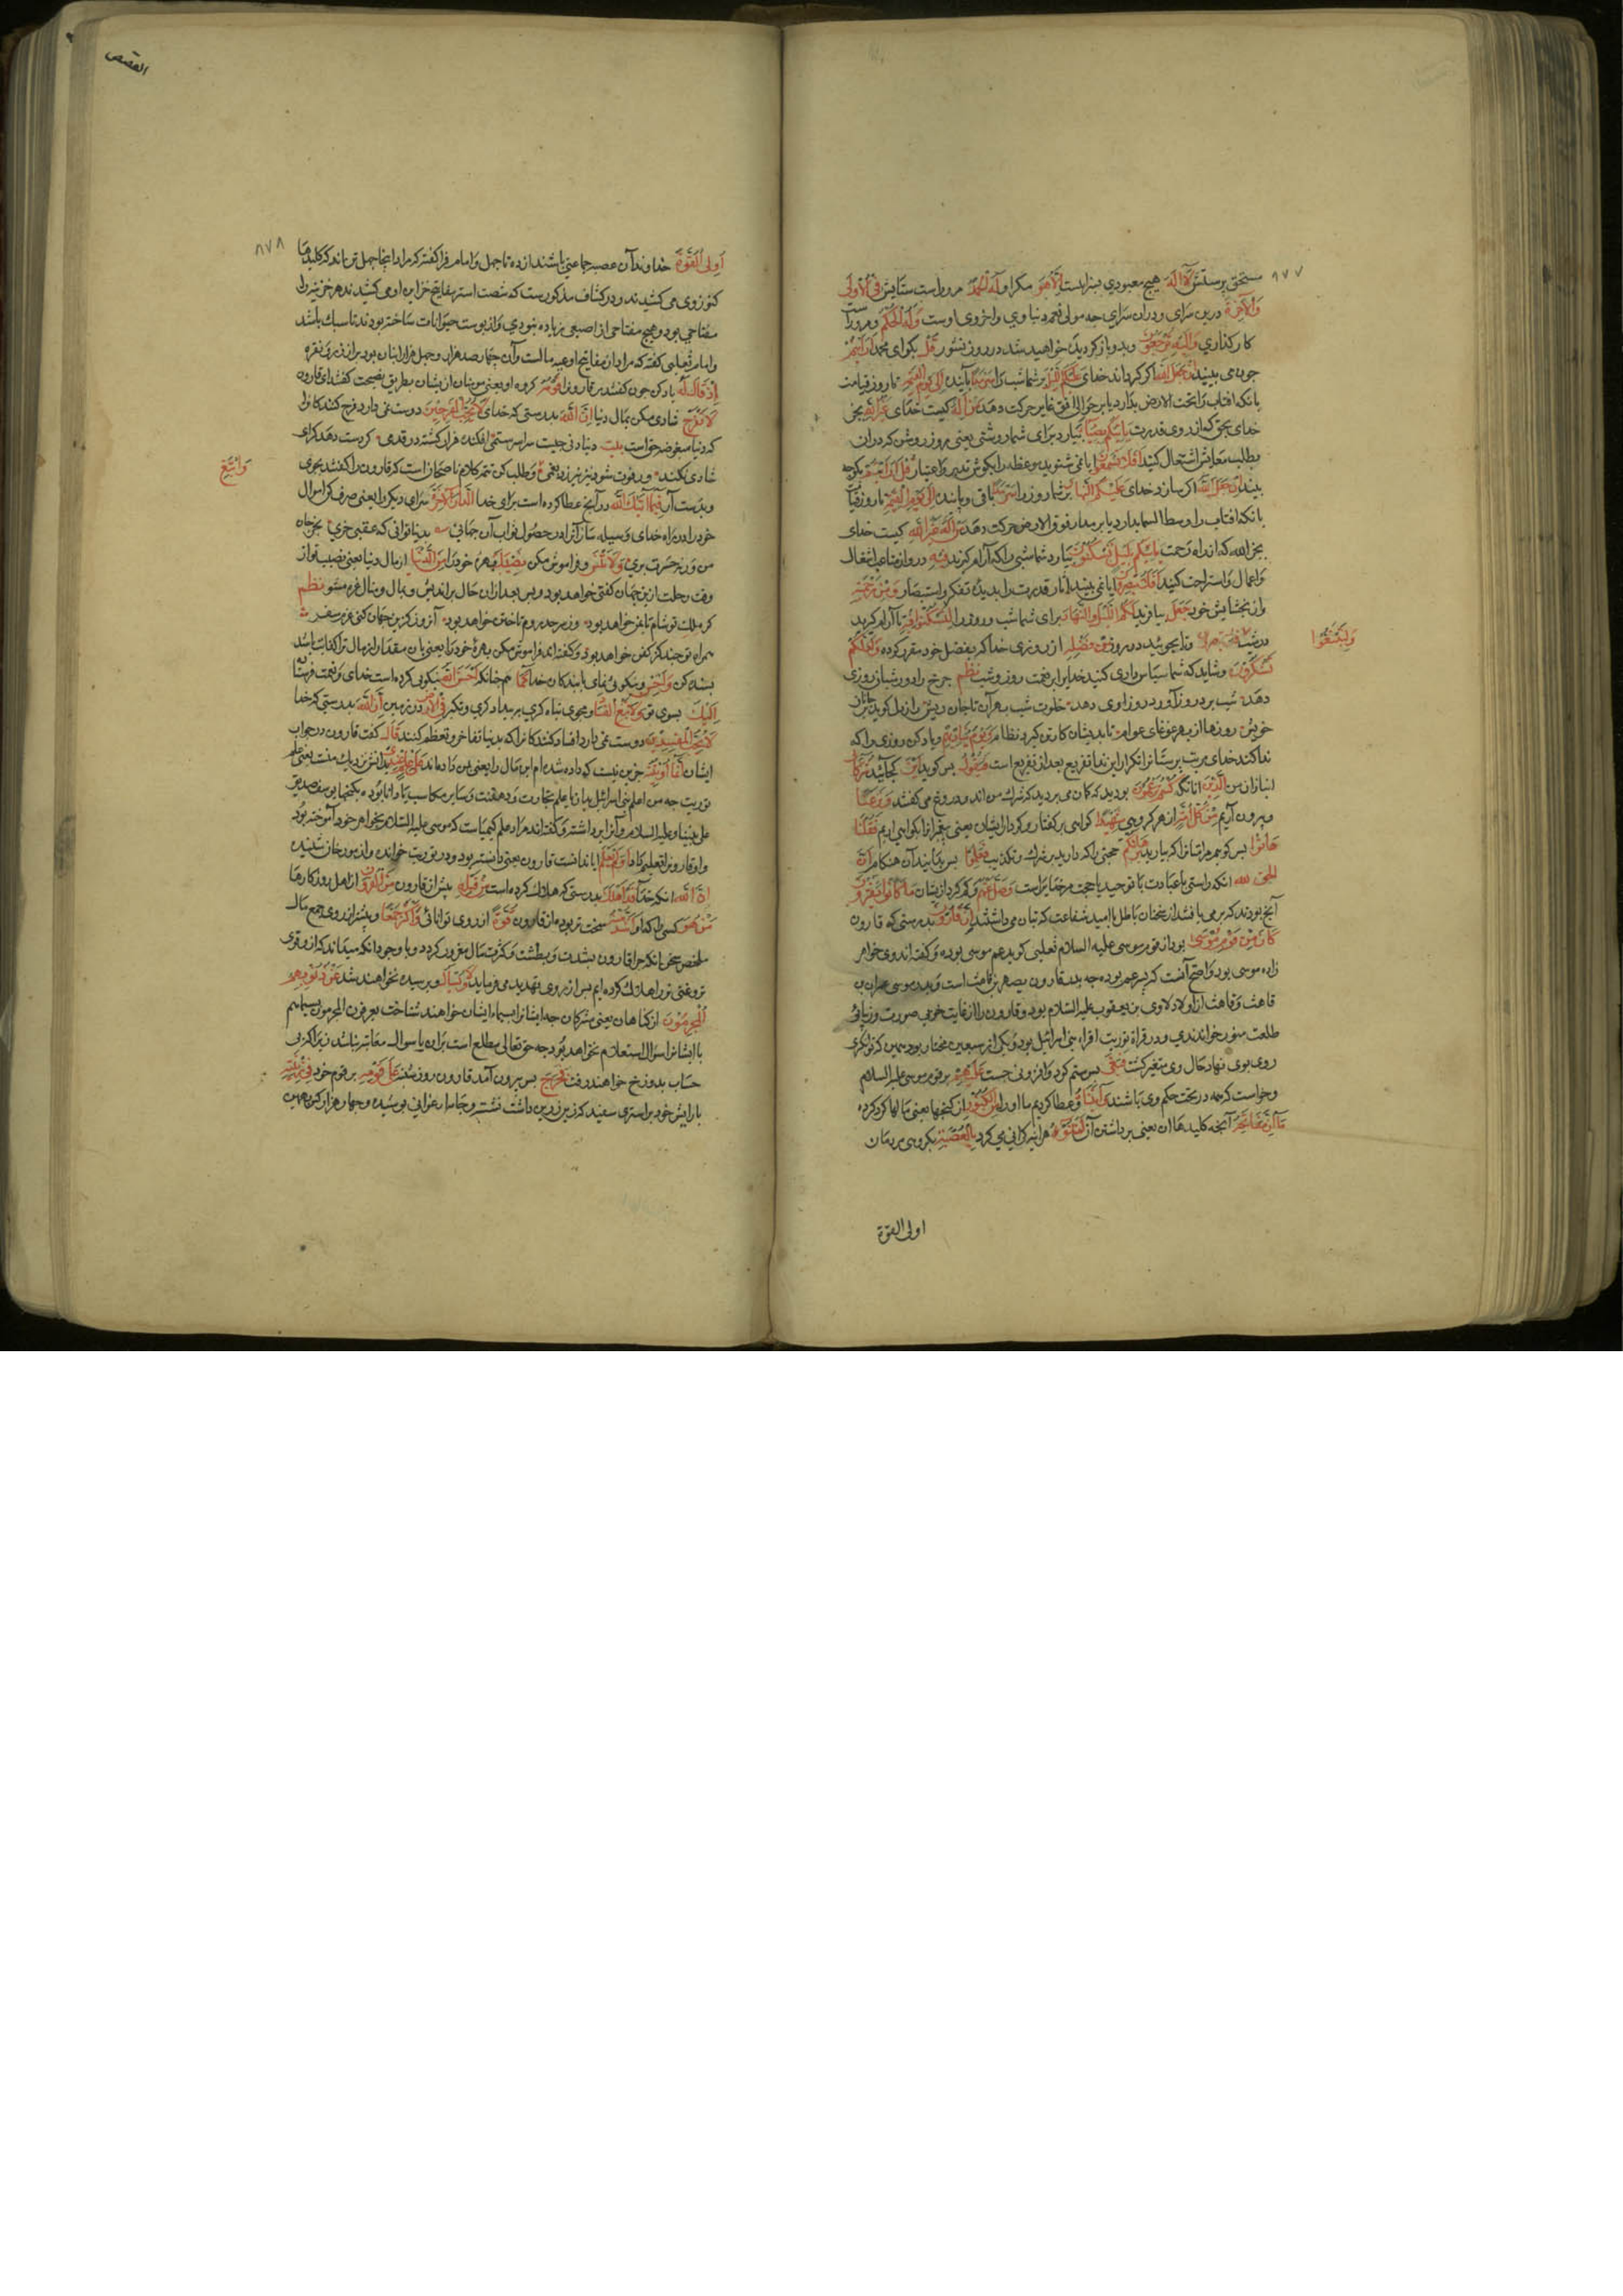 ٨٧٧
مستحق پرستش لَا إِلَهَ هیچ معبودی بسزا نیست إِلَّا هُوَ مکر او لَهُ الْحَمْدُ مر او راست ستایش فِي الْأُولَى
وَالْآخِرَةِ درین سرای و دران سرای چه مولی نعم دنیاوی و اخروی اوست وَلَهُ الْحُكْمُ و مر او راست
کار کذاری وَإِلَيْهِ تُرْجَعُونَ و بدو باز کردیده خواهید شد در روز نشور قُلْ بکو ای محمد أَرَأَيْتُمْ
چون می بینید إِنْ جَعَلَ اللَّهُ اکر کرداند خدای عَلَيْكُمُ اللَّيْلَ بر شما شب را سَرْمَدًا پاینده إِلَى يَوْمِ الْقِيَامَةِ تا روز قیامت
بانکه افتاب را تحت الارض بدارد یا بر حوالی افق غایر حرکت دهد مَنْ إِلَهٌ کیست خدای غَيْرُ اللَّهِ بجز
خدای بحق که از روی قدرت يَأْتِيكُمْ بِضِيَاءٍ بیارد برای شما روشنی یعنی روز روشن که دران
بطلب معاش اشتغال کنید أَفَلَا تَسْمَعُونَ ایا نمی شنوید موعظه را بکوش تدبر و اعتبار قُلْ أَرَأَيْتُمْ بکو چه
بینید إِنْ جَعَلَ اللَّهُ اکر سازد خدای عَلَيْكُمُ النَّهَارَ بر شما روز را سَرْمَدًا باقی و پاینده إِلَى يَوْمِ الْقِيَامَةِ تا روز قیامت
بانکه افتاب را وسط السما بدارد یا بر مدار فوق الارض حرکت دهد مَنْ إِلَهٌ غَيْرُ اللَّهِ کیست خدای
بجز الله که از راه رحمت يَأْتِيكُمْ بِلَيْلٍ تَسْكُنُونَ بیارد شما شبی را که آرام کیرید فِيهِ درو از متاعب اشغال
و اعمال و استراحت کنید أَفَلَا تُبْصِرُونَ ایا نمی بینید اثار قدرت را بدیده تفکر و استبصار وَمِنْ رَحْمَتِهِ
و از بخشایش خود جَعَلَ بیافرید لَكُمُ اللَّيْلَ وَالنَّهَارَ برای شما شب و روز را لِتَسْكُنُوا فِيهِ تا آرام کیرید
وَلِتَبْتَغُوا
در شب و تا بجوئید در روز مِنْ فَضْلِهِ از روزی خدا که بفضل خود مقرر کرده وَلَعَلَّكُمْ
تَشْكُرُونَ و شاید که شما سپاس داری کنید خدایرا بر نعمت روز و شب نظم چرخ را دور شبان روزی
دهد شب برد روز آورد روزاوی دهد خلوت شب بهر آن تا جان ریش راز دل کوید بر
خویش روزها از بهر غوغای عوام تا بدیشان کار تن کیرد نظام وَيَوْمَ يُنَادِيهِمْ و یاد کن روزی را که
ندا کند خدای مر بت پرستانرا تکرار این ندا تقریع بعد از تقریع است فَيَقُولُ پس کوید أَيْنَ کجااند شُرَكَائِيَ
انبازان من الَّذِينَ انانکه كُنْتُمْ تَزْعُمُونَ بودید که کمان می بردید که شریک من اند و دروغ می کفتید وَنَزَعْنَا
و بیرون آریم مِنْ كُلِّ أُمَّةٍ از هر کروهی شَهِيدًا کواهی بر کفتار و کردار ایشان یعنی پیغمبر انرا بکواهی اریم فَقُلْنَا
پس کوییم مر امتانرا که بیارید هَاتُوا بُرْهَانَكُمْ حجتی را که دارید بر شرک و تکذیب فَعَلِمُوا پس بدانند آن هنکام أَنَّ
الْحَقَّ لِلَّهِ انکه راستی یا عبادت یا توحید یا حجت مر خدایراست وَضَلَّ عَنْهُمْ و کم کردد از یشان مَا كَانُوا يَفْتَرُونَ
آنچ بودند که برمی بافتند از سخنان باطل یا امید شفاعت که بتان می داشتند إِنَّ قَارُونَ بدرستی که قارون
كَانَ مِنْ قَوْمِ مُوسَى بود از قوم موسی علیه السلام ثعلبی کوید عم موسی بوده و کفته اند وی خواهر
زاده موسی بود و اصح آنست که پسر عم بوده چه پدر قارون یصهر بن قاهث است و پدر موسی عمران بن
قاهث و قاهث از اولاد لاوی بن یعقوب علیه السلام بود و قارون را از غایت خوبی صورت و زیبائی
طلعت منور خواندندی و در قراءة توریت اقراء بنی اسرائیل بود و یکی از سبعین مختار بود همین که توانکری
روی بوی نهاد حال وی متغیر کشت فَبَغَى پس ستم کرد و افزونی جست عَلَيْهِمْ بر قوم موسی علیه السلام
و خواست که همه در تحت حکم وی باشند وَآتَيْنَاهُ و عطا کردیم ما او را مِنَ الْكُنُوزِ از کنجها یعنی مالها کرد کرده
مَا إِنَّ مَفَاتِحَهُ آنچه کلیدهاان یعنی برداشتن آن لَتَنُوءُ هر اینه کرانی می کرد بِالْعُصْبَةِ بکروهی مردمان
اولی القوة
القصص
٨٧٨
أُولِي الْقُوَّةِ خداوندان آن عصبه جماعتی باشند از ده تا چهل و امام فرا کفته که مراد اینجا چهل تن باند که کلیدها
کنوز وی می کشیدند و در کشاف مذکورست که شصت استر مفاتیح خزاین او می کشیدند هر خزینه را
مفتاحی بود و هیچ مفتاحی از اصبعی زیاده نبودی و از پوست حیوانات ساخته بودند تا سبک باشد
و امام ثعلبی کفته که مراد از مفاتیح اوعیه مالست و آن چهار صد هزار و چهل هزار انبان بود پر از زر و نقره
إِذْ قَالَ لَهُ یاد کن چون کفتند مر قارون را قَوْمُهُ کروه او یعنی مومنان از یشان بطریق نصیحت کفتند ای قارون
لَا تَفْرَحْ شادی مکن بمال دنیا إِنَّ اللَّهَ بدرستی که خدای لَا يُحِبُّ الْفَرِحِينَ دوست نمی دارد فرح کنندکانرا
که دنیا مبغوضه خداست بیت دنیا دنی چیست سراسر ستمی افکنده هزار کشته در قدمی کر دست دهد کرای
شادی نکند ور فوت شود نیز نیرزد بغمی و طلب کن تتمه کلام ناصحان است که قارون را کفتند بجوی
وَابْتَغِ
و بدست آر فِيمَا آتَاكَ اللَّهُ در آنچ عطا کرده است برای خدا الدَّارَ الْآخِرَةَ سرای دیکر را یعنی صرف کن اموال
خود را در راه خدای و وسیله ساز آنرا در حصول ثواب آن جهانی بدنیا توانی که عقبی خری بخر جان
من ورنه حسرت بری وَلَا تَنْسَ و فراموش مکن نَصِيبَكَ بهره خود را مِنَ الدُّنْيَا از مال دنیا یعنی نصیب تو از
وقت رحلت ازین جهان کفنی خواهد بود و بس بعد ازان حال براندیش و بمال و منال غره مشو نظم
کر ملک تو شام تا یمن خواهد بود وز سرحد روم تا ختن خواهد بود آنروز کزین جهان کنی عزم سفر
همراه تو چند کز کفن خواهد بود و کفته اند فراموش مکن بهره خود را یعنی بان مقدار از مال ترا کفایت باشد
بسنده کن وَأَحْسِنْ و نیکویی نمای با بندکان خدا كَمَا هم چنانکه أَحْسَنَ اللَّهُ نیکویی کرده است خدای و نعمت فرستاده
إِلَيْكَ بسوی تو وَلَا تَبْغِ الْفَسَادَ و مجوی تباه کاری بر بیدادکری و تکبر فِي الْأَرْضِ در زمین إِنَّ اللَّهَ بدرستی که خدا
لَا يُحِبُّ الْمُفْسِدِينَ دوست نمی دارد افساد کنندکانرا که بدنیا تفاخر و تعظم کنند قَالَ کفت قارون در جواب
ایشان إِنَّمَا أُوتِيتُهُ جزین نیست که داده شده ام این مال را یعنی بمن داده اند عَلَى عِلْمٍ عِنْدِي بر دانش نزدیک منست یعنی علم
توریت چه من اعلم بنی اسرائیل یا علم تجارت و دهقنت و سایر مکاسب یا دانا بوده بکنجها یوسف صدیق
علی نبینا و علیه السلام و آنرا برداشته و کفته اند مراد علم کیمیاست که موسی علیه السلام بخواهر خود آموخته بود
و او قارون را تعلیم کرد أَوَلَمْ يَعْلَمْ ایا ندانست قارون یعنی دانسته بود و در توریت خوانده و از مورخان شنیده
أَنَّ اللَّهَ انکه خدای قَدْ أَهْلَكَ بدرستی که هلاک کرده است مِنْ قَبْلِهِ پیش از قارون مِنَ الْقُرُونِ از اهل روزکارها
مَنْ هُوَ کسی را که او أَشَدُّ مِنْهُ سخت تر بوده از قارون قُوَّةً از روی توانائی وَأَكْثَرُ جَمْعًا و بیشتر از روی جمع مال
ملخص سخن انکه چرا قارون بشدت و بطشت و کثرت مال مغرور کردد و با وجود انکه میداند که از و قوی
تر و غنی تر را هلاک کرده ایم پس از روی تهدید می فرماید وَلَا يُسْأَلُ و پرسیده نخواهند شد عَنْ ذُنُوبِهِمُ
الْمُجْرِمُونَ از کناهان یعنی مشرکان چه ایشانرا بسیما ایشان خواهند شناخت یعرفون المجرمون بسیماهم
یا ایشانرا سوال استعلام نخواهد بود چه حق تعالی مطلع است بران یا سوال معاتبه نباشد زیرا که بی
حساب بدوزخ خواهند رفت فَخَرَجَ پس بیرون آمد قارون روز شنبه عَلَى قَوْمِهِ بر قوم خود فِي زِينَتِهِ
بارایش خود بر استری سفید که زین زرین داشت نشسته و جامه ارغوانی پوشیده و چهار هزار کس